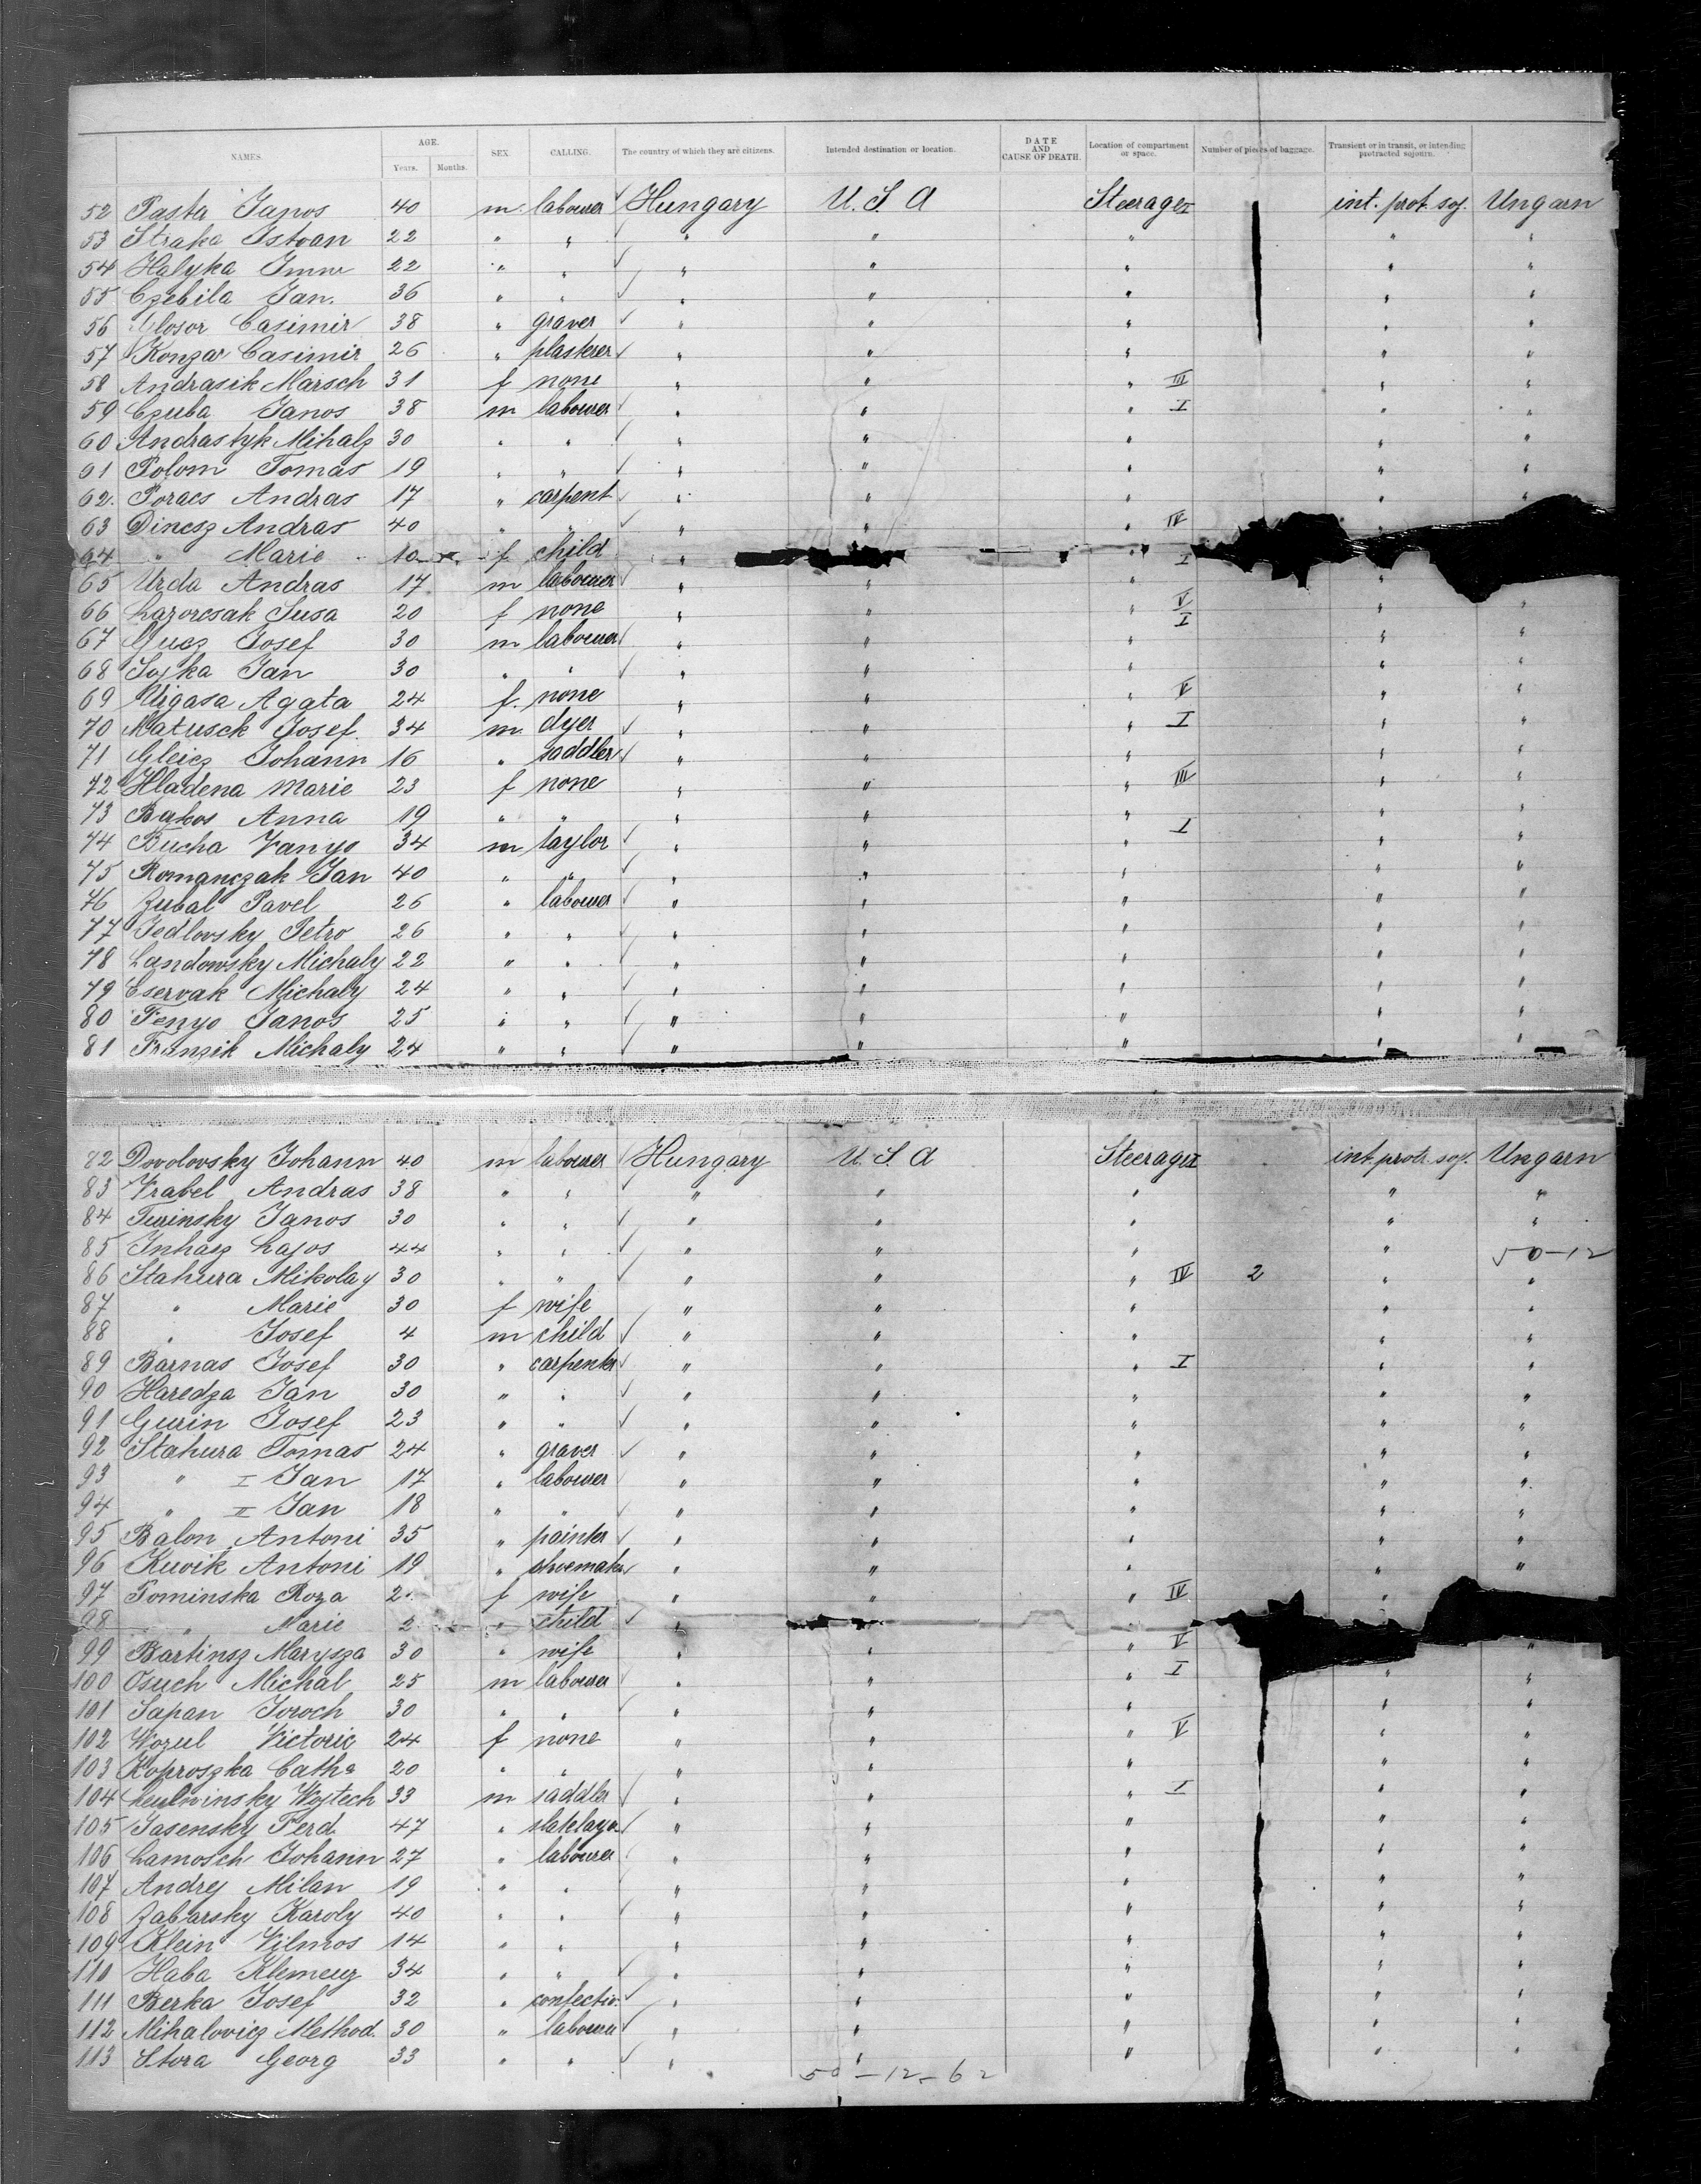 NAMES. AGE. Years. Months. SEX. CALLING. The country of which they are citizens. Intended destination or location. DATE AND CAUSE OF DEATH. Location of compartment or space. Number of pieces of baggage. Transient or in transit, or intending protracted sojourn.
52 Pasta Janos 40 m labourer Hungary U.S.A Steerage I int. prot. soj. Ungarn
53 Straka Istvan 22 " " " " " " "
54 Halyka Imre 22 " " " " " " "
55 Czebila Jan. 36 " " " " " " "
56 Casimir 38 " graver " " " " "
57 Konzar Casimir 26 " plasterer " " " " "
58 Andrasik Marsch 31 f none " " " III " "
59 Czuba Janos 38 m labourer " " " I " "
60 Andrastyk Mihalz 30 " " " " " " "
61 Polom Tomas 19 " " " " " " "
62. Poracs Andras 17 " carpent " " " " "
63 Dincsz Andras 40 " " " " " IV "
64 " Marie 10 f child " " I
65 Urda Andras 17 m labourer " " " "
66 Lazorcsak Susa 20 f none " " " V " "
67 Gucz Josef 30 m labourer " " " I " "
68 Sojka Jan 30 " " " " " " "
69 Migasa Agata 24 f. none " " " V " "
70 Matusck Josef. 34 m dyer " " " I " "
71 Gleicz Johann 16 " saddler " " " " "
72 Hladena Marie 23 f none " " " III " "
73 Bakos Anna 19 " " " " " " "
74 Bucha Vanyo 34 m taylor " " " I " "
75 Romanczak Jan 40 " " " " " " "
76 Zubal Pavel 26 " labourer " " " " "
77 Jedlovsky Petro 26 " " " " " " "
78 Landowsky Michaly 22 " " " " " " "
79 Cservak Michaly 24 " " " " " " "
80 Fenyo Janos 25 " " " " " " "
81 Franzik Michaly 24 " " " " " " "
82 Dovolovsky Johann 40 m labourer Hungary U.S.A Steerage I int. protr. soj. Ungarn
83 Vrabel Andras 38 " " " " " " "
84 Turinsky Janos 30 " " " " " " "
85 Inhasz Lajos 44 " " " " " " 50-12
86 Stahura Mikolay 30 " " " " " IV 2 " "
87 " Marie 30 f wife " " " " "
88 " Josef 4 m child " " " " "
89 Barnas Josef 30 " carpenter " " " I " "
90 Haredza Jan 30 " " " " " " "
91 Gurin Josef 23 " " " " " " "
92 Stahura Tomas 24 " graver " " " " "
93 " I Jan 17 " labourer " " " " "
94 " II Jan 18 " " " " " " "
95 Balon Antoni 35 " painter " " " " "
96 Kuvik Antoni 19 " shoemaker " " " " "
97 Tominska Roza 2. f wife " " " IV "
98 " Marie 2 " child " "
99 Bartinsz Marysza 30 " wife " " " V "
100 Osuch Michal 25 m labourer " " " I " "
101 Sapan Joroch 30 " " " " " " "
102 Wozul Victoric 24 f none " " " V " "
103 Koproszka Catha 20 " " " " " " "
104 Wojtech 33 m saddler " " " I " "
105 Jasensky Ferd. 47 " slatelaya " " " " "
106 Lamosch Johann 27 " labourer " " " " "
107 Andrej Milan 19 " " " " " " "
108 Zabarsky Karoly 40 " " " " " " "
109 Klein Vilmos 14 " " " " " " "
110 Haba Klemeuz 34 " " " " " " "
111 Berka Josef 32 " confectio. " " " " "
112 Mihalovicz Method. 30 " labourer " " " " "
113 Stora Georg 33 " " " " " " "
50-12-62